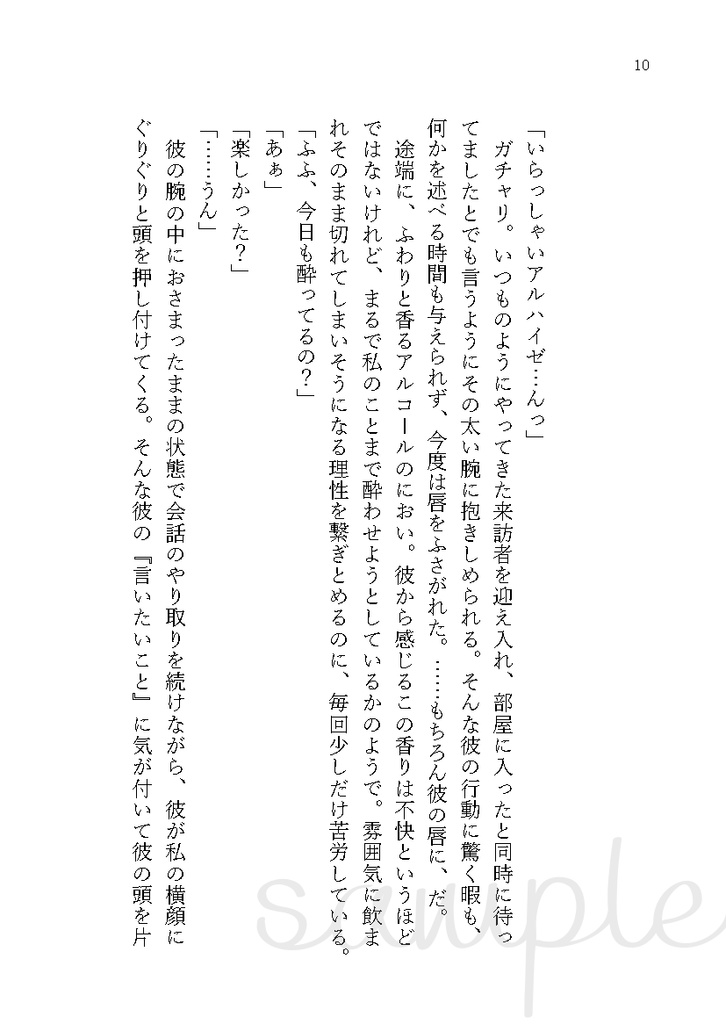 10
「いらっしゃいアルハイゼ…んっ」
　ガチャリ。いつものようにやってきた来訪者を迎え入れ、部屋に入ったと同時に待っ
てましたとでも言うようにその太い腕に抱きしめられる。そんな彼の行動に驚く暇も、
何かを述べる時間も与えられず、今度は唇をふさがれた。……もちろん彼の唇に、だ。
　途端に、ふわりと香るアルコールのにおい。彼から感じるこの香りは不快というほど
ではないけれど、まるで私のことまで酔わせようとしているかのようで。雰囲気に飲ま
れそのまま切れてしまいそうになる理性を繋ぎとめるのに、毎回少しだけ苦労している。
「ふふ、今日も酔ってるの？」
「あぁ」
「楽しかった？」
「……うん」
　彼の腕の中におさまったままの状態で会話のやり取りを続けながら、彼が私の横顔に
ぐりぐりと頭を押し付けてくる。そんな彼の『言いたいこと』に気が付いて彼の頭を片
sample